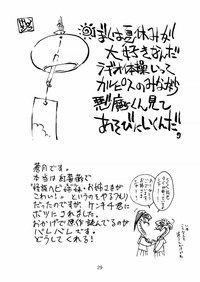 ぼくは夏休みが
大好きなんだ。
ラジオ体操いって
カルピスのみながら
悪魔くん見て
あそびにいくんだ。
蒼月です。
本当は紅薔薇で
お姉さまが
こわい！。というのをやるつもり
だったのですが、ケンキチ君に
ボツにされました。
おかげで原作読んでるのが
バレバレです。
どうしてくれる！
29